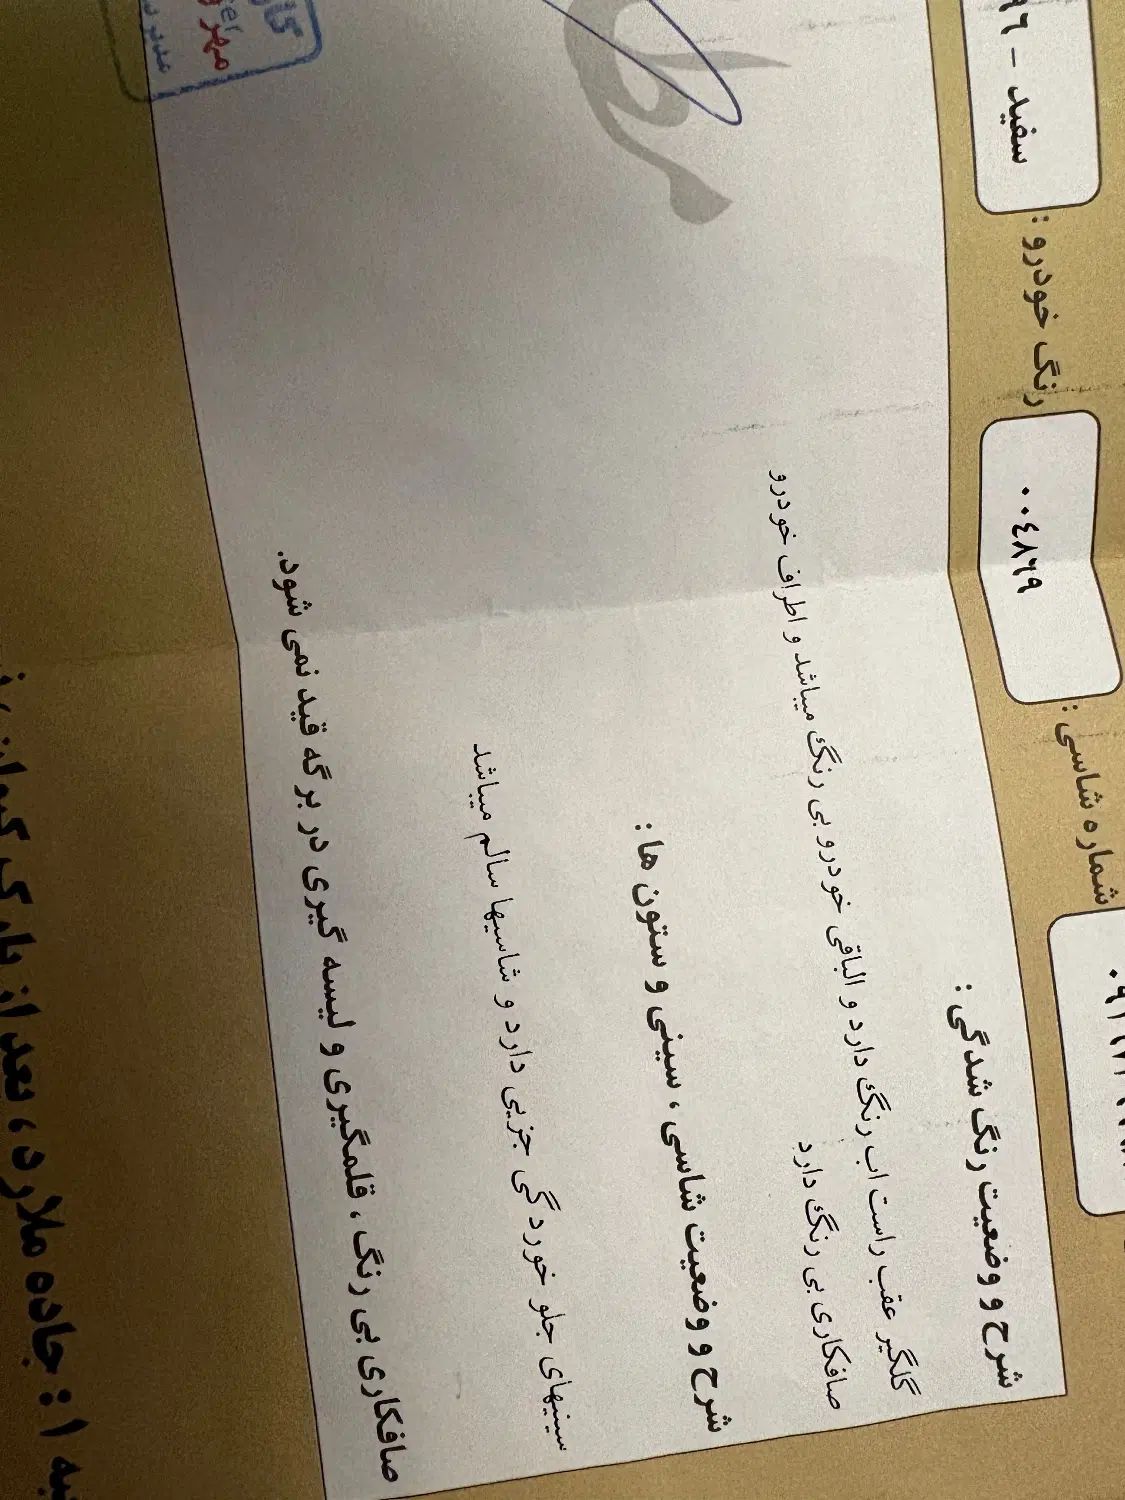 سفید - ۹۶
رنگ خودرو :
۰۰٤۸٦۹
شماره شاسی :
شرح و وضعیت رنگ شدگی :
گلگیر عقب راست اب رنگ دارد و الباقی خودرو بی رنگ میباشد و اطراف خودرو
صافکاری بی رنگ دارد
شرح و وضعیت شاسی ، سینی و ستون ها :
سینیهای جلو خوردگی جزیی دارد و شاسیها سالم میباشد
صافکاری بی رنگ ، قلمگیری و لیسه گیری در برگه قید نمی شود.
مهر
۱ : جاده ملارد ، بعد از پارک